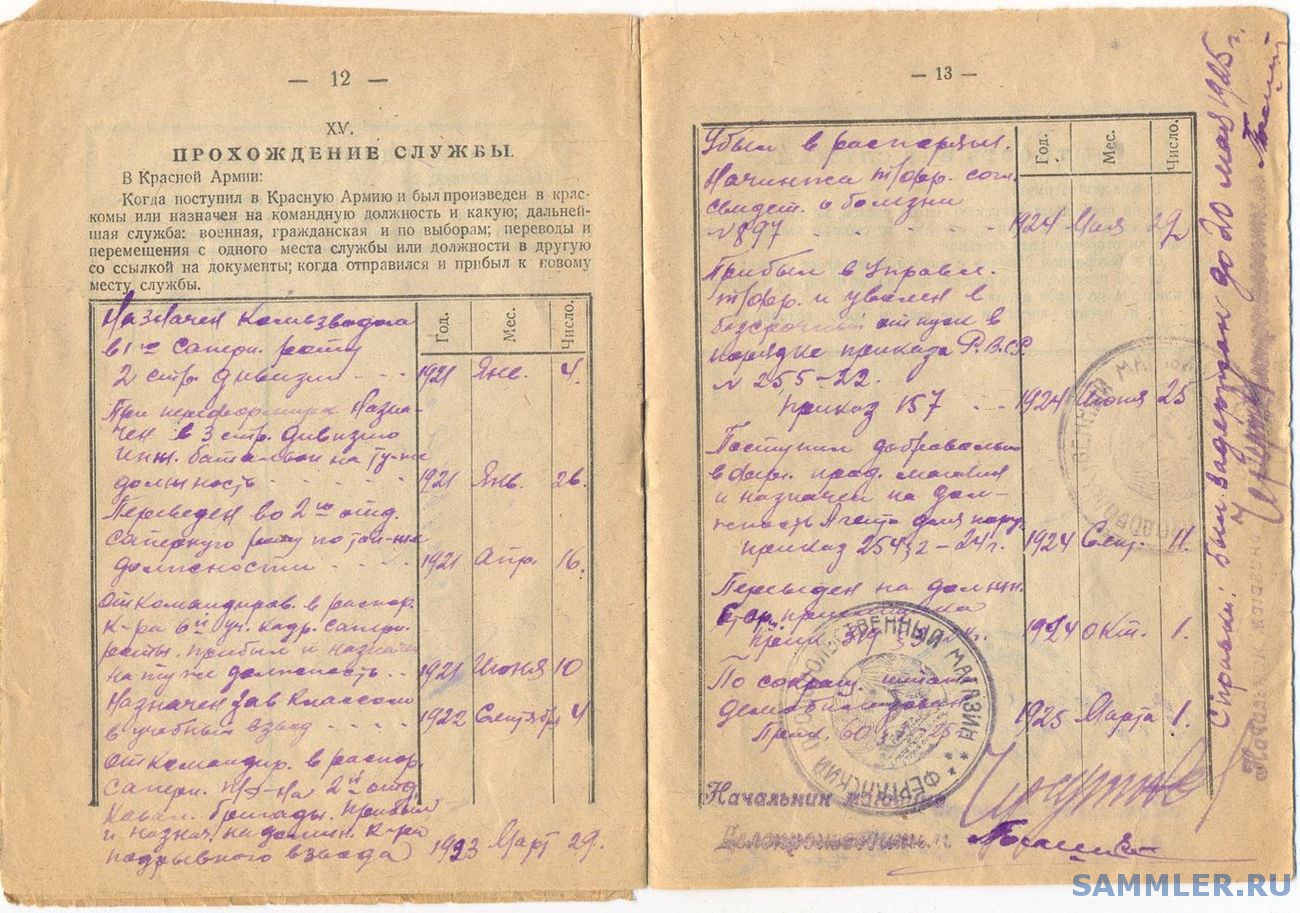 — 12 —
XV.
ПРОХОЖДЕНИЕ СЛУЖБЫ.
В Красной Армии:
Когда поступил в Красную Армию и был произведен в крас-
комы или назначен на командную должность и какую; дальней-
шая служба: военная, гражданская и по выборам; переводы и
перемещения с одного места службы или должности в другую
со ссылкой на документы; когда отправился и прибыл к новому
месту службы.
Год. Мес. Число.
Назначен Комвзвода
в 1ую саперн. роту
2 стр. дивизии 1921 Янв. 4.
При переформир. Назна-
чен в 3 стр. дивизию
инж. баталион на ту-же
должность 1921 Янв. 26.
Переведен во 2ую отд.
саперную роту по той-же
должности 1921 Апр. 16.
Откомандиров. в распор.
к-ра 6й уч. кадр. саперн.
роты. прибыл и назначен
на ту же должность 1921 Июня 10
Назначен Зав классом
в учебный взвод 1922 Сентября 4
Откомандир. в распор.
Саперн. п/э-на 2й отд
Кавал. бригады. прибыл
и назнач. на должн. к-ра
подрывного взвода 1923 Март 29.
— 13 —
Год. Мес. Число.
Убыл в распоряж.
Начинжа т/фр. согл.
свидет. о болезни
№ 897 1924 Мая 29
Прибыл в Управл.
т/фр. и уволен в
безсрочный отпуск в
порядке приказа Р.В.С.Р.
№ 255-22.
приказ 157 1924 Июня 25
Поступил добровольно
в Фер. прод. магазин
и назначен на дол-
жность Агента для пору.
приказ 254 § 2-24 г. 1924 Сент. 11.
Переведен на должн.
Стар. 1924 Окт. 1.
По сокращ. штата
демобилизован
Прик. 60 1925 Марта 1.
ФЕРГАНСКИЙ ПРОДОВОЛЬСТВЕННЫЙ МАГАЗИН
Начальник магазина
Делопроизводитель
Справка: был задержан до 20 мая 1925 г.
Начальник магазина
SAMMLER.RU